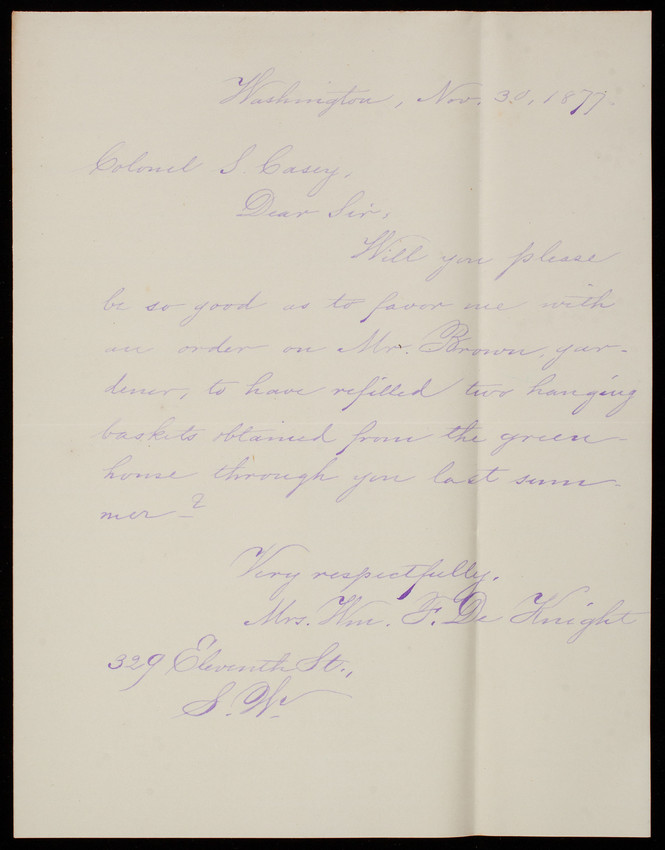 Washington, Nov. 3d, 1877.
Colonel S. Casey,
Dear Sir,
Will you please
be so good as to favor me with
an order on Mr. Brown, gar-
dener, to have refilled two hanging
baskets obtained from the green-
house through you last sum-
mer?
Very respectfully,
Mrs. Wm. F. De Knight
329 Eleventh St.,
S. W.